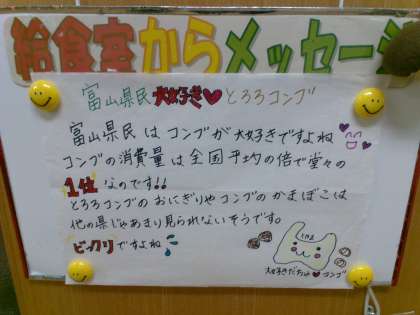 給食室からメッセージ
富山県民大好き♥とろろコンブ
富山県民はコンブが大好きですよね
コンブの消費量は全国平均の倍で堂々の
1位なのです!!
とろろコンブのおにぎりやコンブのかまぼこは
他の県じゃあまり見られないそうです。
ビックリですよね
大好きだちょ♥コンブ